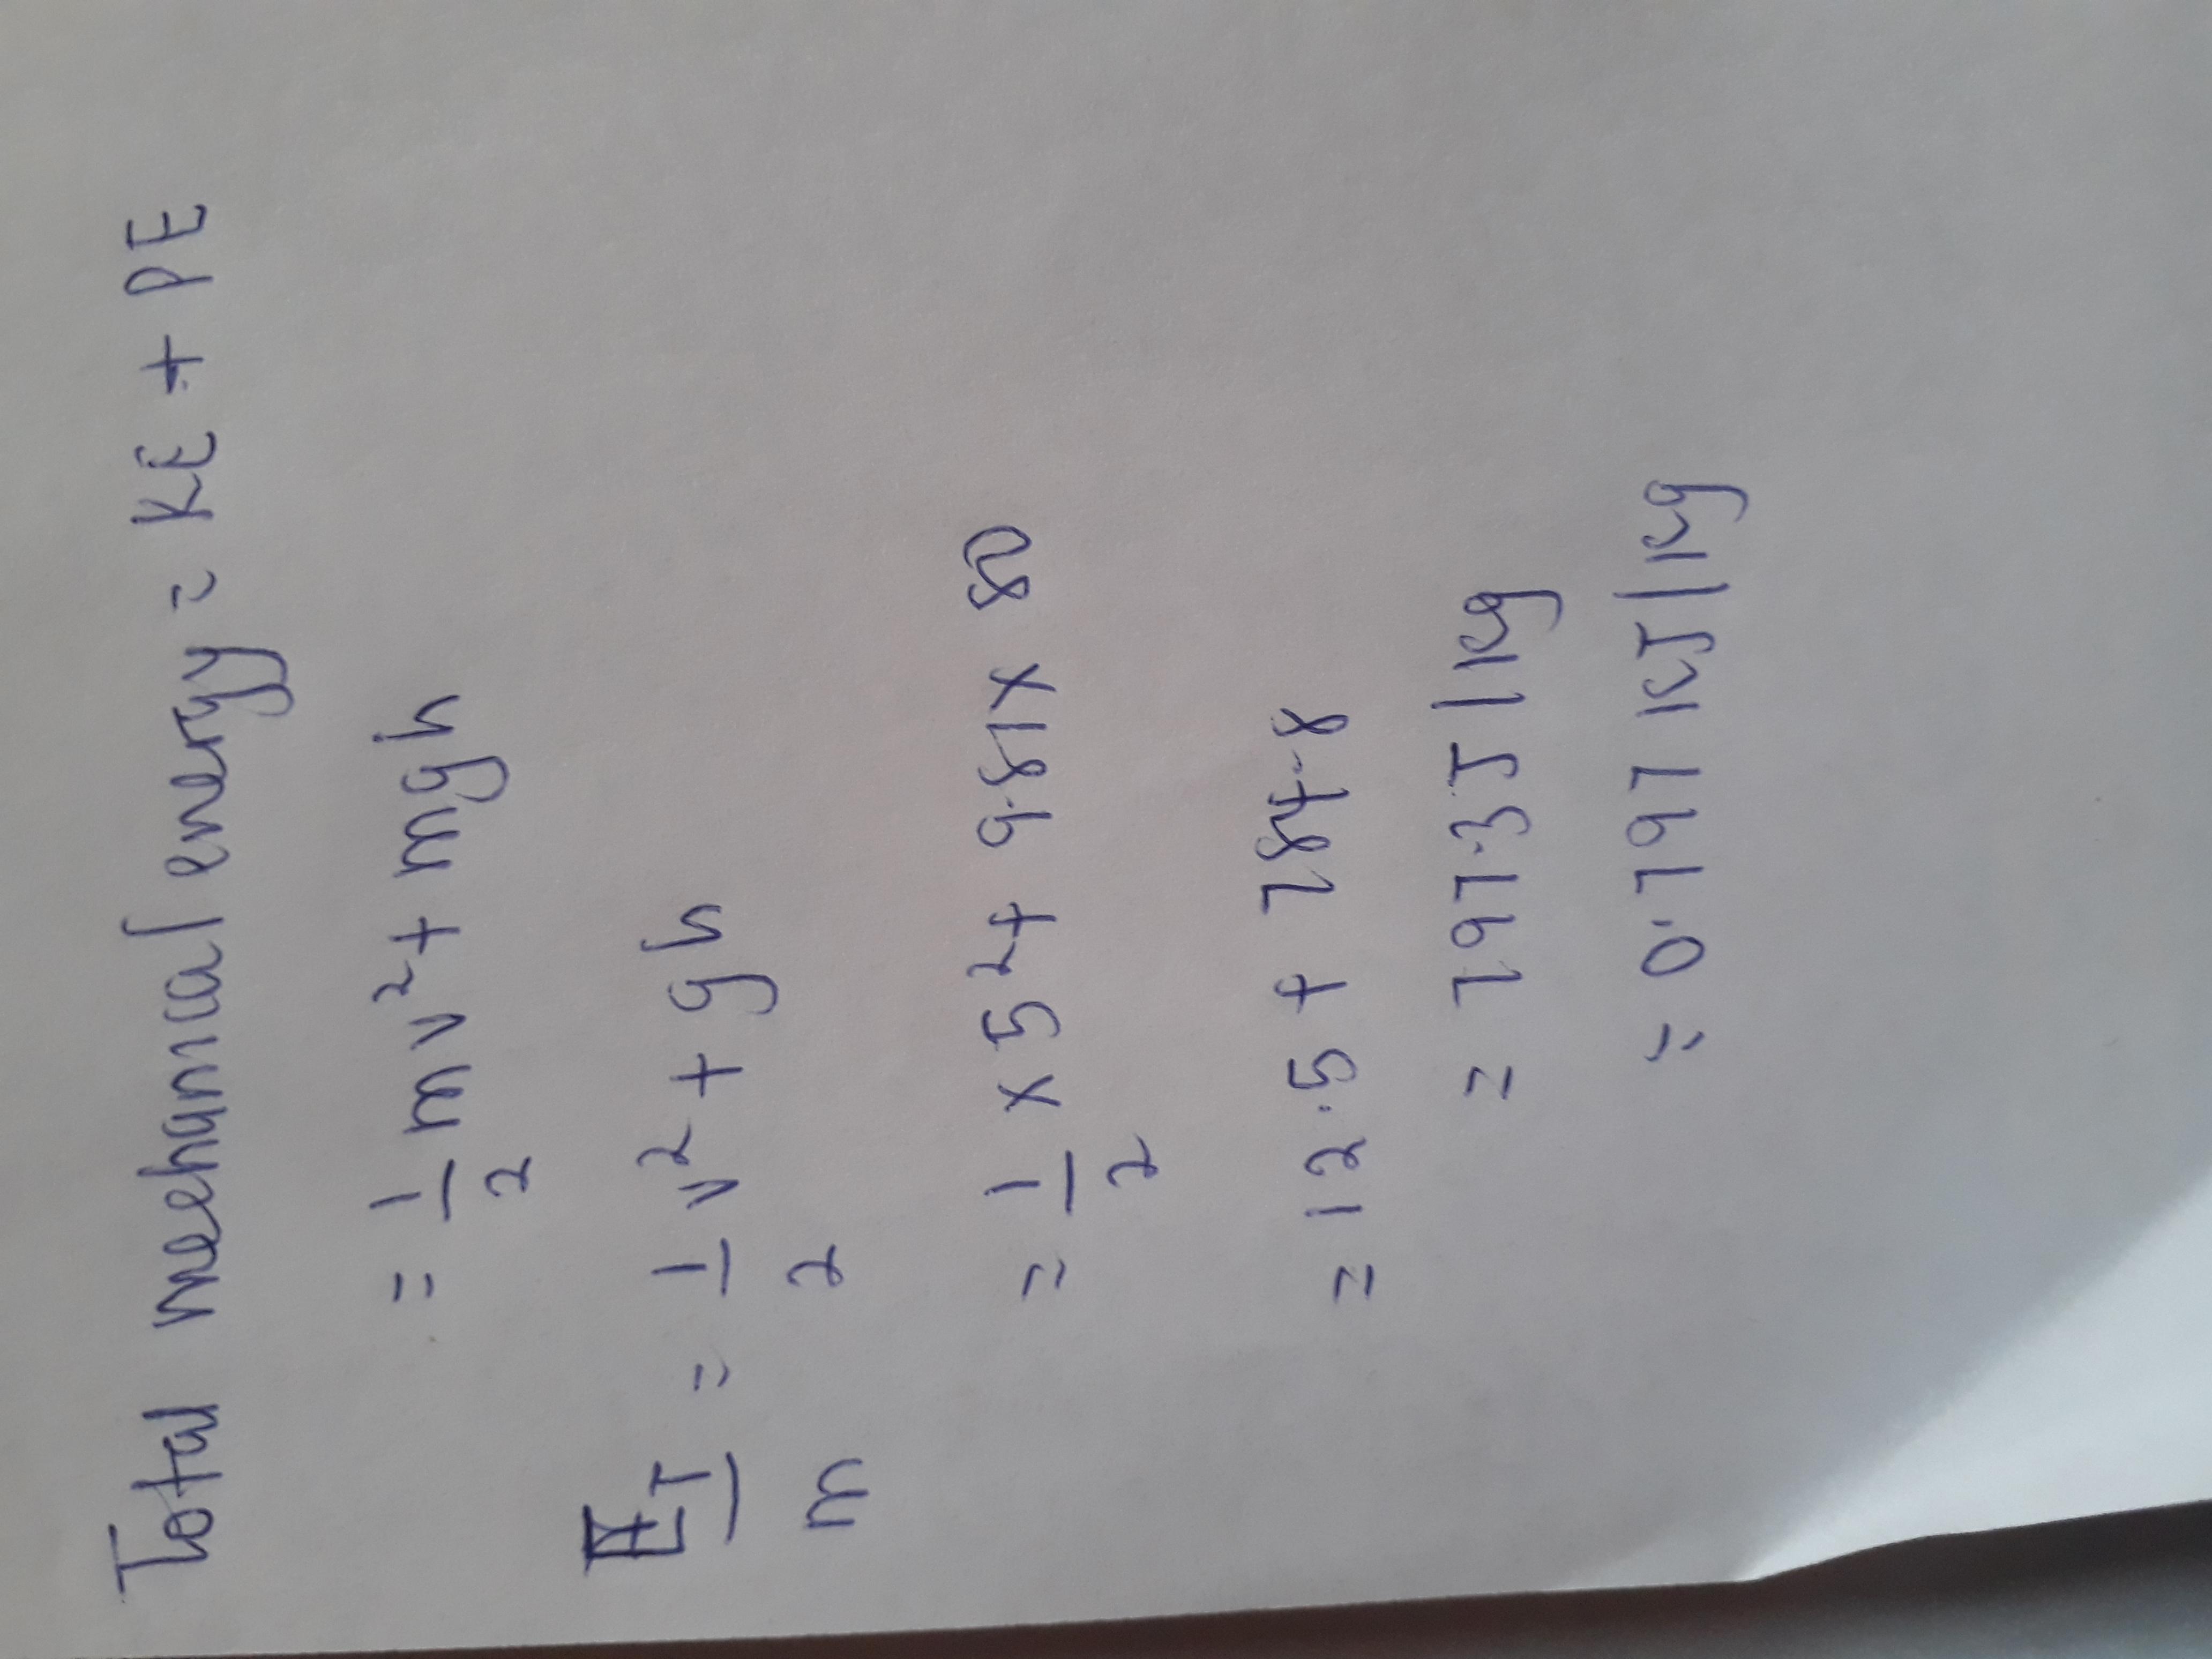 Total mechanical energy = KE + PE
= 1/2 mv² + mgh
E_T/m = 1/2 v² + gh
= 1/2 x 5² + 9.81 x 80
= 12.5 + 784.8
= 797.3 J/kg
= 0.797 kJ/kg